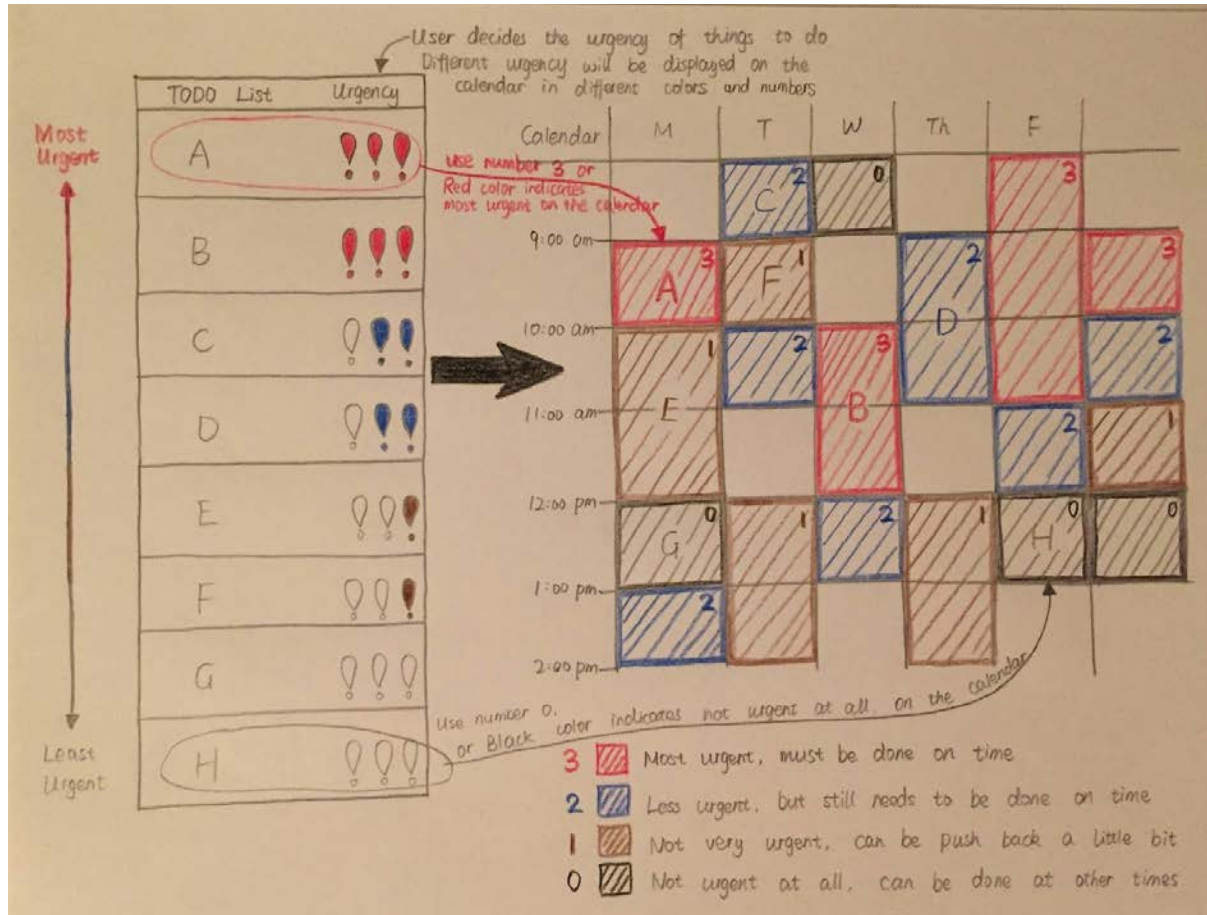 User decides the urgency of things to do
Different urgency will be displayed on the
calendar in different colors and numbers
TODO List Urgency
Most
Urgent
A
B
C
D
E
F
G
H
Least
Urgent
Use number 3 or
Red color indicates
most urgent on the calendar
Calendar M T W Th F
C 2 0 3
9:00 am
A 3 F 1 D 2 3
10:00 am
E 1 2 B 3 2
11:00 am
2 1
12:00 pm
G 0 1 2 1 H 0 0
1:00 pm
2
2:00 pm
Use number 0,
or Black color indicates not urgent at all, on the calendar
3 Most urgent, must be done on time
2 Less urgent, but still needs to be done on time
1 Not very urgent, can be push back a little bit
0 Not urgent at all, can be done at other times